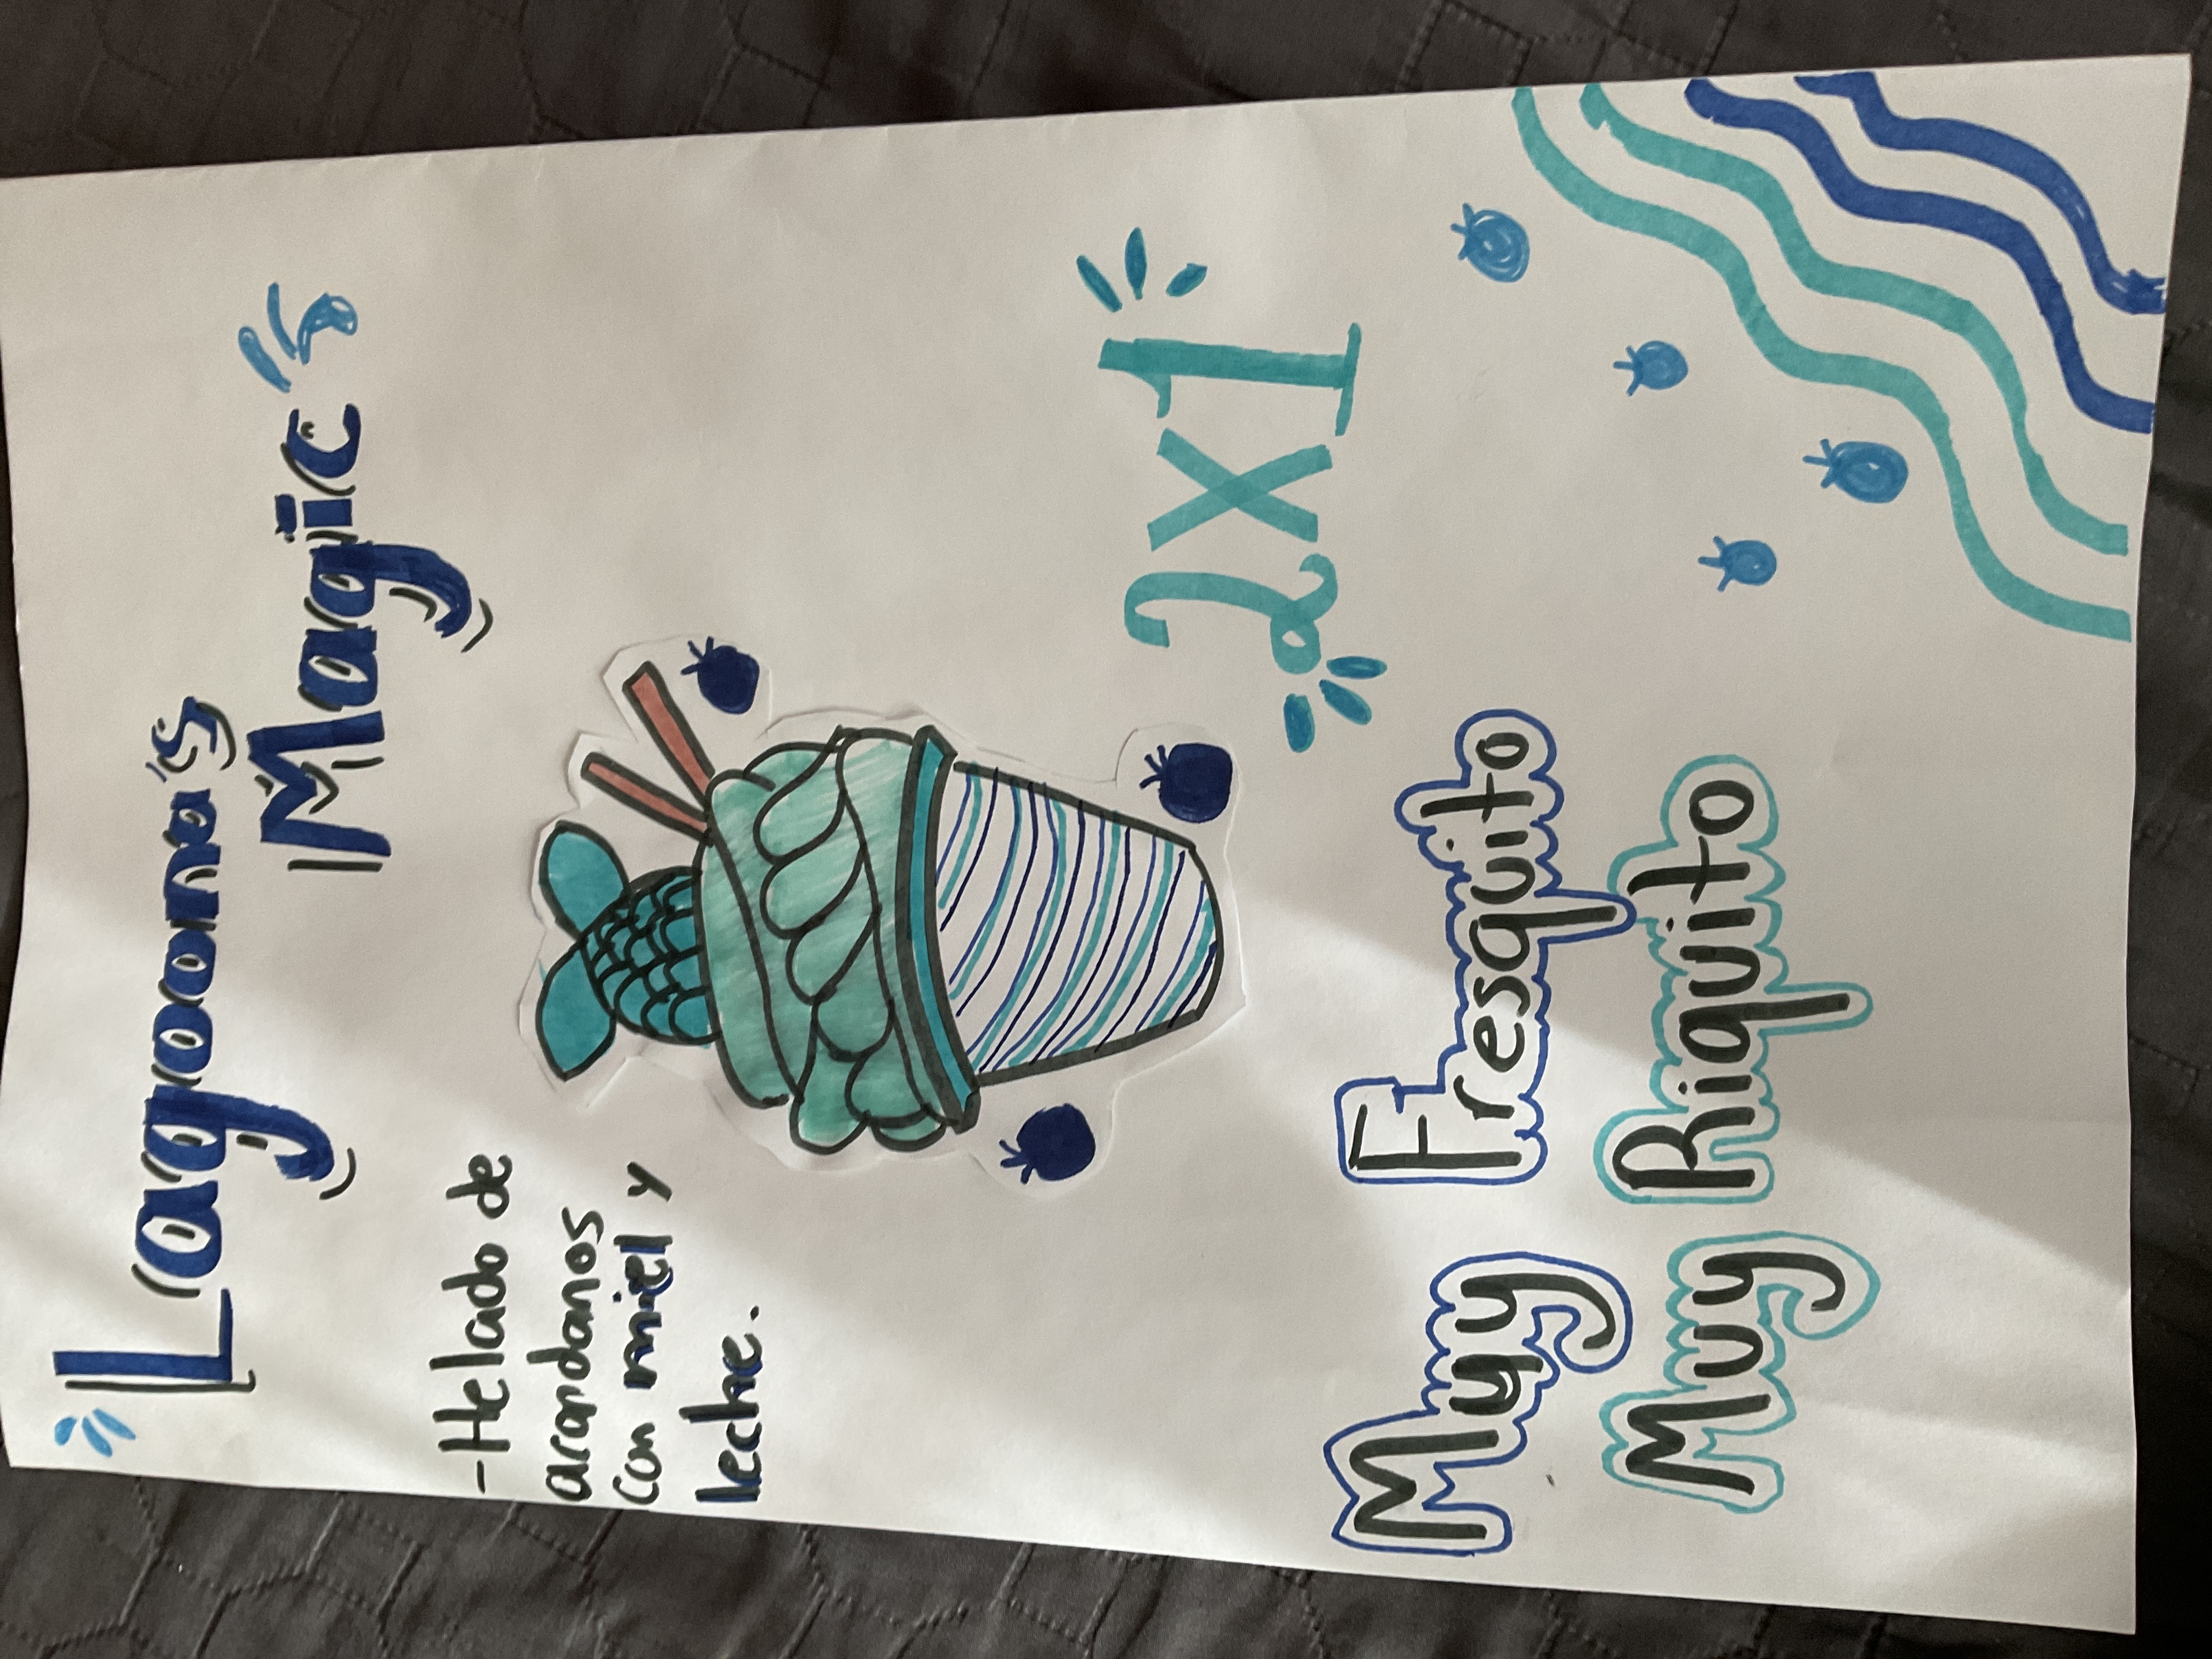 Lagoona's
Magic
-Helado de
arandanos
con miel y
leche.
2x1
Muy Fresquito
Muy Riquito